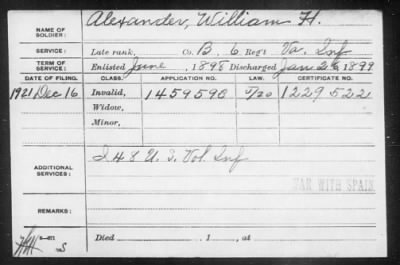 NAME OF SOLDIER: Alexander, William H.
SERVICE: Late rank, Co. B, 6 Reg't Va. Inf
TERM OF SERVICE: Enlisted June, 1898 Discharged Jan 26, 1899
DATE OF FILING. CLASS. APPLICATION NO. LAW. CERTIFICATE NO.
1921 Dec 16 Invalid, 1459590 1229522
Widow,
Minor,
ADDITIONAL SERVICES: U.S. Vol Inf
WAR WITH SPAIN
REMARKS:
Died 1 , at